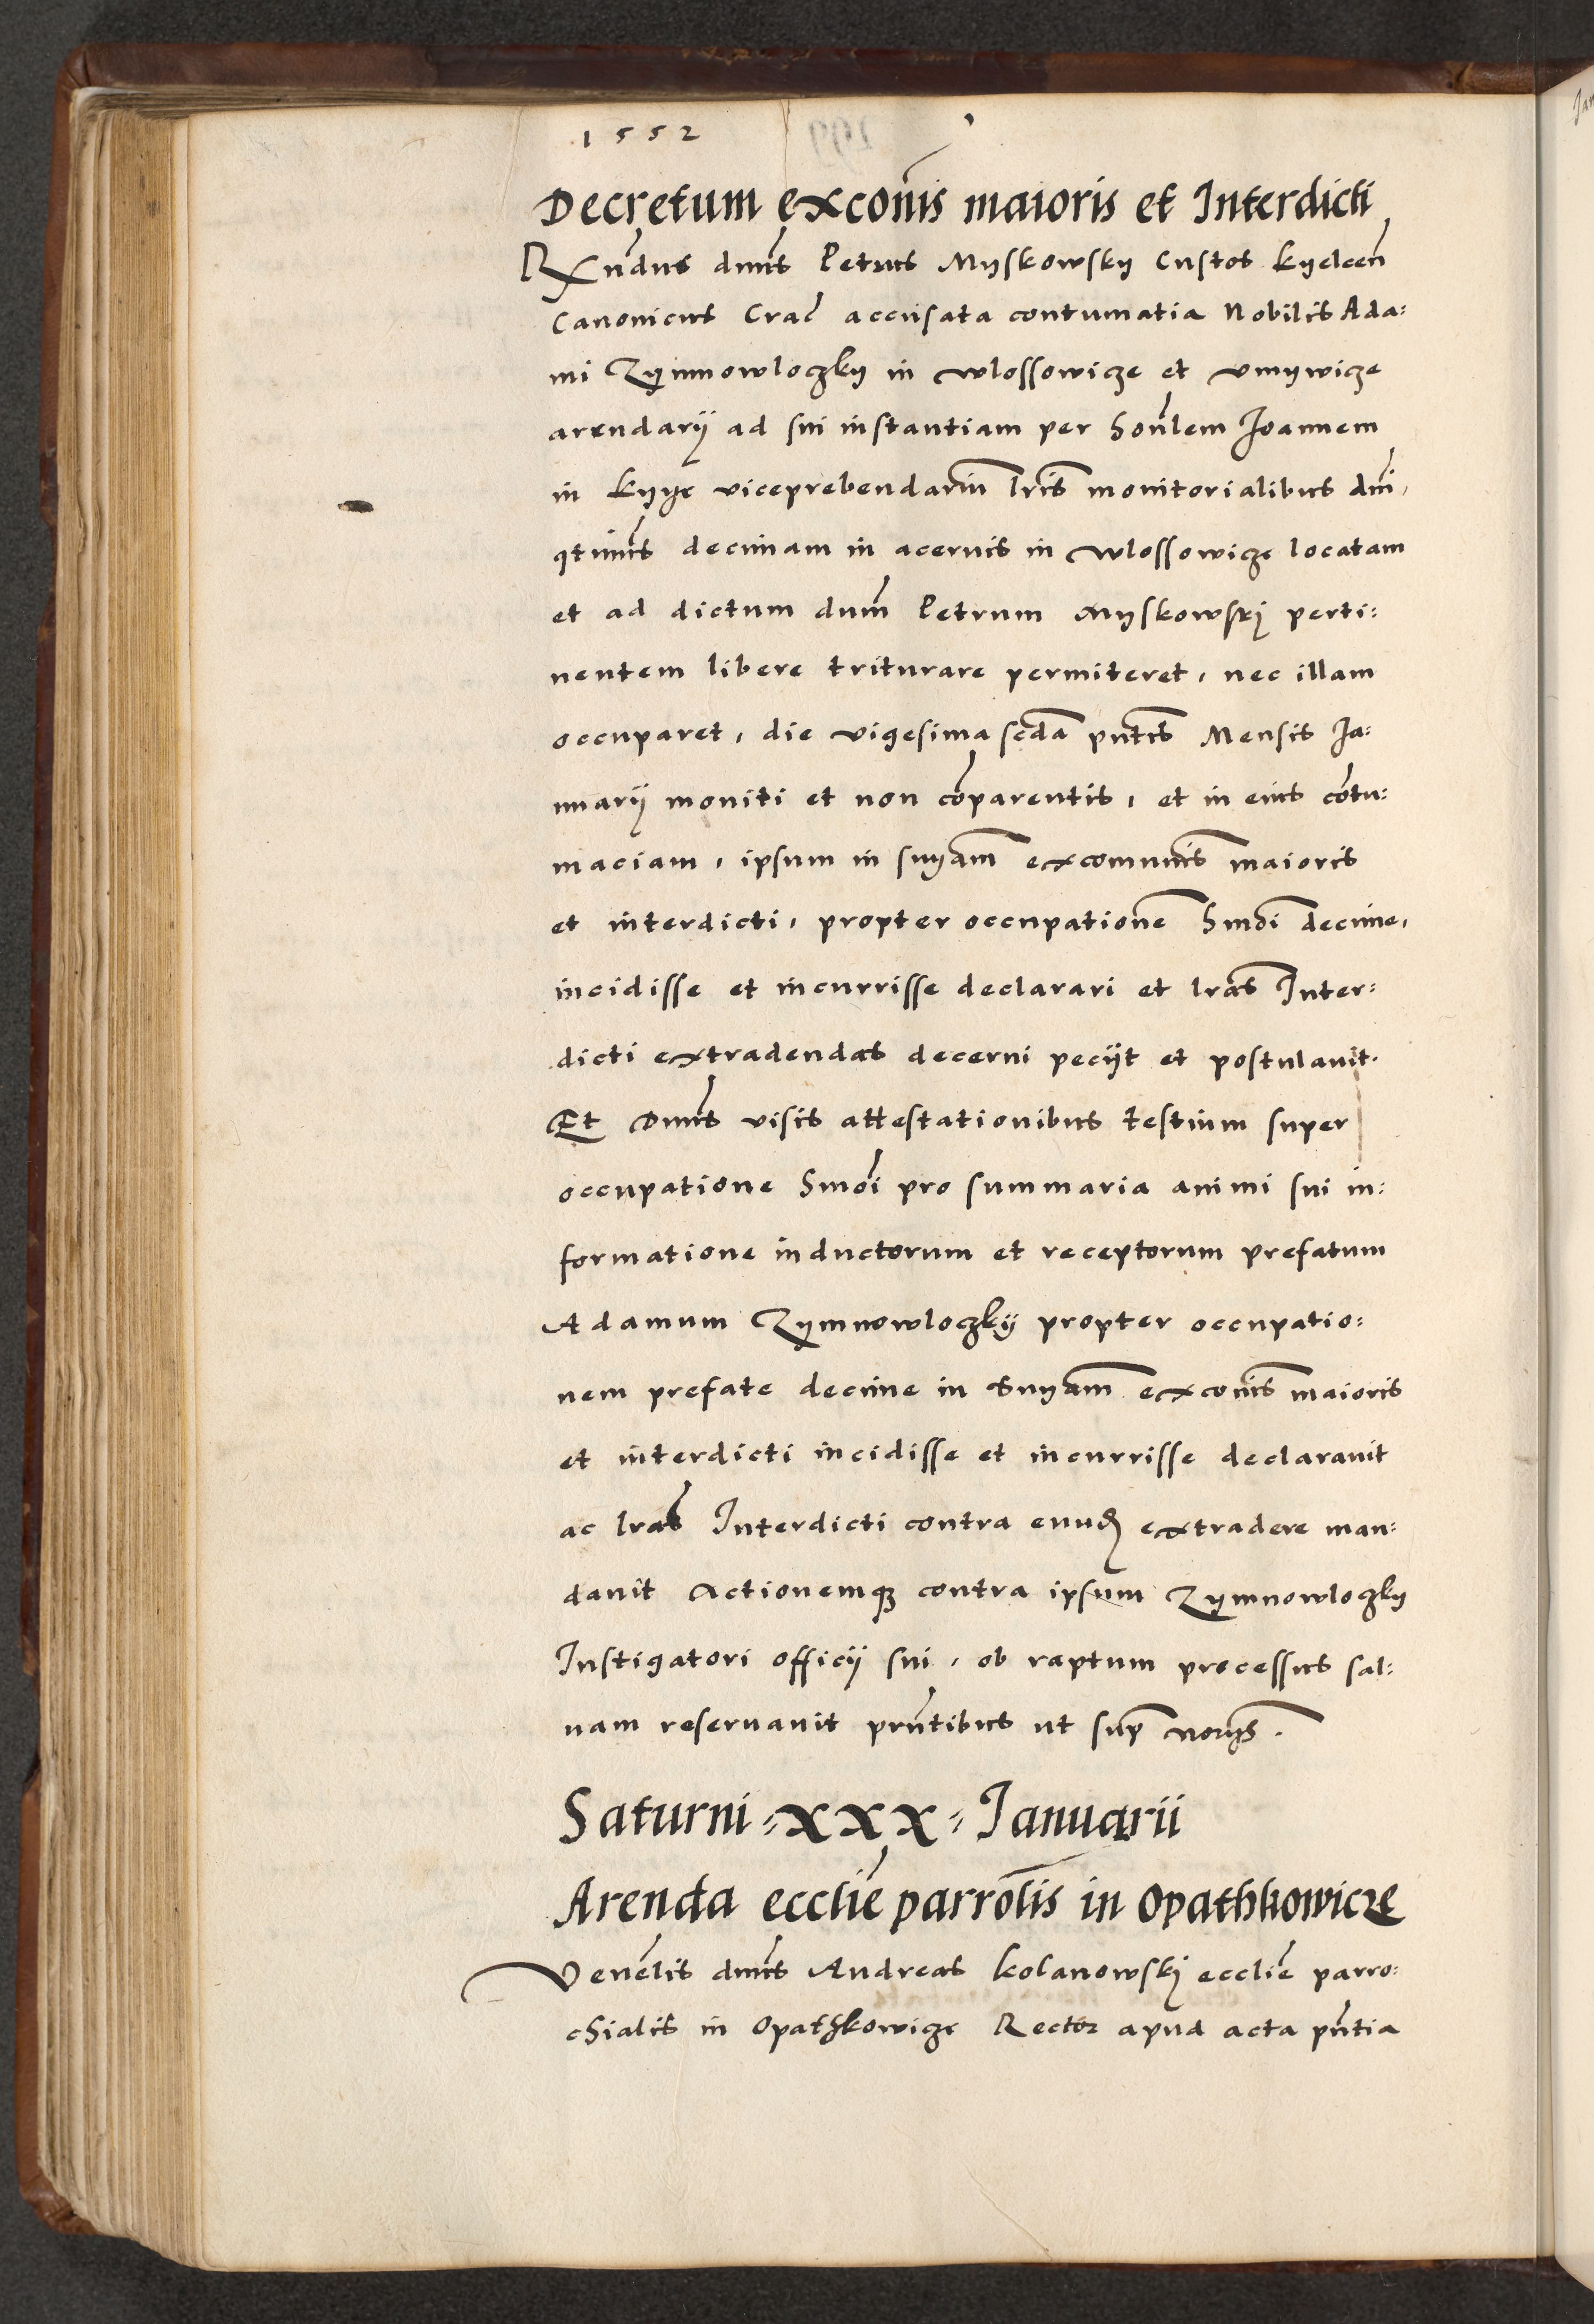 1552
Decretum exco͂nis maioris et Interdicti
Rx͂ndus dnus Petrus Myskowsky Custos Kyelceñ
Canonicus Crac̃ accusata contumatia Nobilis Ada:
mi Zymnowloczky in Wlossowicze et Vmywicze
arendarij ad sui instantiam per hon̄lem Joannem
in Kyye viceprebendariu͂ lr͂is monitorialibus dm̄,
qtinus decimam in acervis in Wlossowicze locatam
et ad dictum dnm̄ Petrum Myskowskj perti:
nentem libere triturare permiteret, nec illam
occuparet, die vigesima sc̄da pn̄tis Mensis Ja:
nuarij moniti et non co͂parentis, et in eius co͂tu:
maciam, ipsum in snyam̄ excomun̄is maioris
et interdicti, propter occupatione͂ hmo͂i decime,
incidisse et incurrisse declarari et lr͂as Inter:
dicti extradendas decerni peciit et postulavit.
Et Dnus visis attestationibus testium super
occupatione hmo͂i pro summaria animi sui in:
formatione inductorum et receptorum prefatum
Adamum Zymnowloczkij propter occupatio:
nem prefate decime in snyam̄ exco͂nis maioris
et interdicti incidisse et incurrisse declaravit
ac lr͂as Interdicti contra eund extradere man:
davit Actionemq3 contra ipsum Zymnowloczky
Instigatori officij sui, ob raptum processus sal:
vam reservavit prn̄tibus ut sup̄ noryys.
Saturni = xxx = Januarii
Arenda ecclie͂ parro͂lis in Opathkowicze
Vene͂lis dnus Andreas Kolanowskj ecclie͂ parro:
chialis in Opathkowicze Rector apud acta pn̄tia